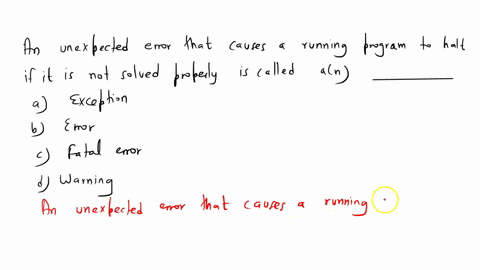 An unexpected error that causes a running program to halt
if it is not solved properly is called a(n) __________
a) Exception
b) Error
c) Fatal error
d) Warning
An unexpected error that causes a running